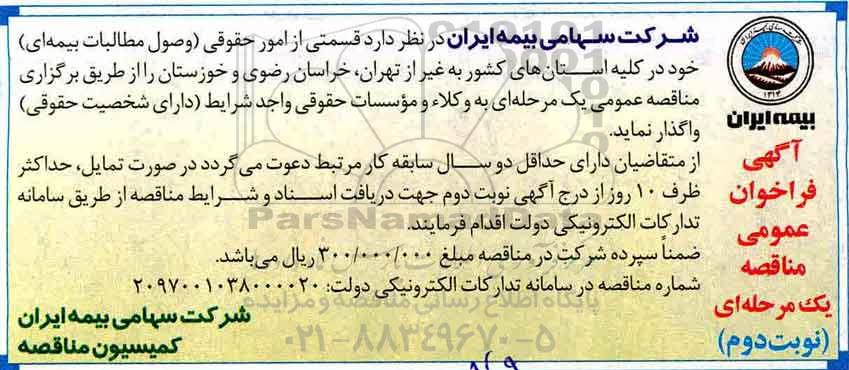 بیمه ایران
۱۳۱۴
آگهی
فراخوان
عمومی
مناقصه
یک مرحله‌ای
(نوبت دوم)
شرکت سهامی بیمه ایران در نظر دارد قسمتی از امور حقوقی (وصول مطالبات بیمه‌ای)
خود در کلیه استان‌های کشور به غیر از تهران، خراسان رضوی و خوزستان را از طریق برگزاری
مناقصه عمومی یک مرحله‌ای به وکلاء و مؤسسات حقوقی واجد شرایط (دارای شخصیت حقوقی)
واگذار نماید.
از متقاضیان دارای حداقل دو سال سابقه کار مرتبط دعوت می‌گردد در صورت تمایل، حداکثر
ظرف ۱۰ روز از درج آگهی نوبت دوم جهت دریافت اسناد و شرایط مناقصه از طریق سامانه
تدارکات الکترونیکی دولت اقدام فرمایند.
ضمناً سپرده شرکت در مناقصه مبلغ ۳۰۰/۰۰۰/۰۰۰ ریال می‌باشد.
شماره مناقصه در سامانه تدارکات الکترونیکی دولت: ۲۰۹۷۰۰۱۰۳۸۰۰۰۰۲۰
شرکت سهامی بیمه ایران
کمیسیون مناقصه
ParsNamadData
پایگاه اطلاع رسانی مناقصه و مزایده
۰۲۱-۸۸۳۴۹۶۷۰-۵